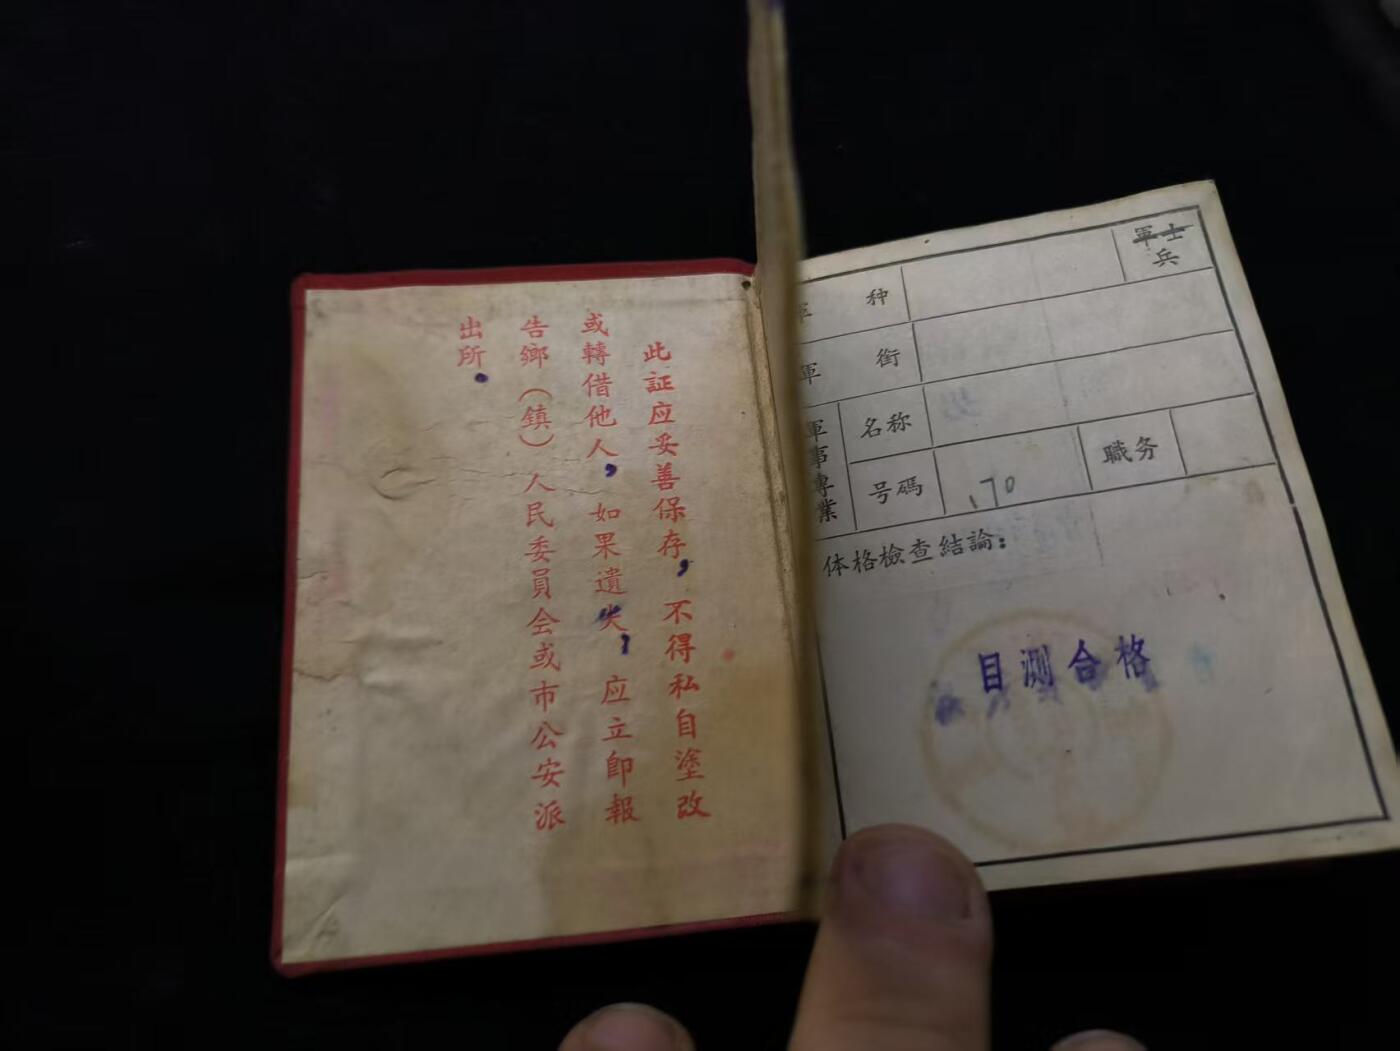 此証应妥善保存，不得私自塗改
或轉借他人，如果遺失，应立即報
告鄉（鎮）人民委員会或市公安派
出所。
軍士
兵
軍种
軍銜
軍事專業
名称
号碼 170
職务
体格檢查結論：
目测合格